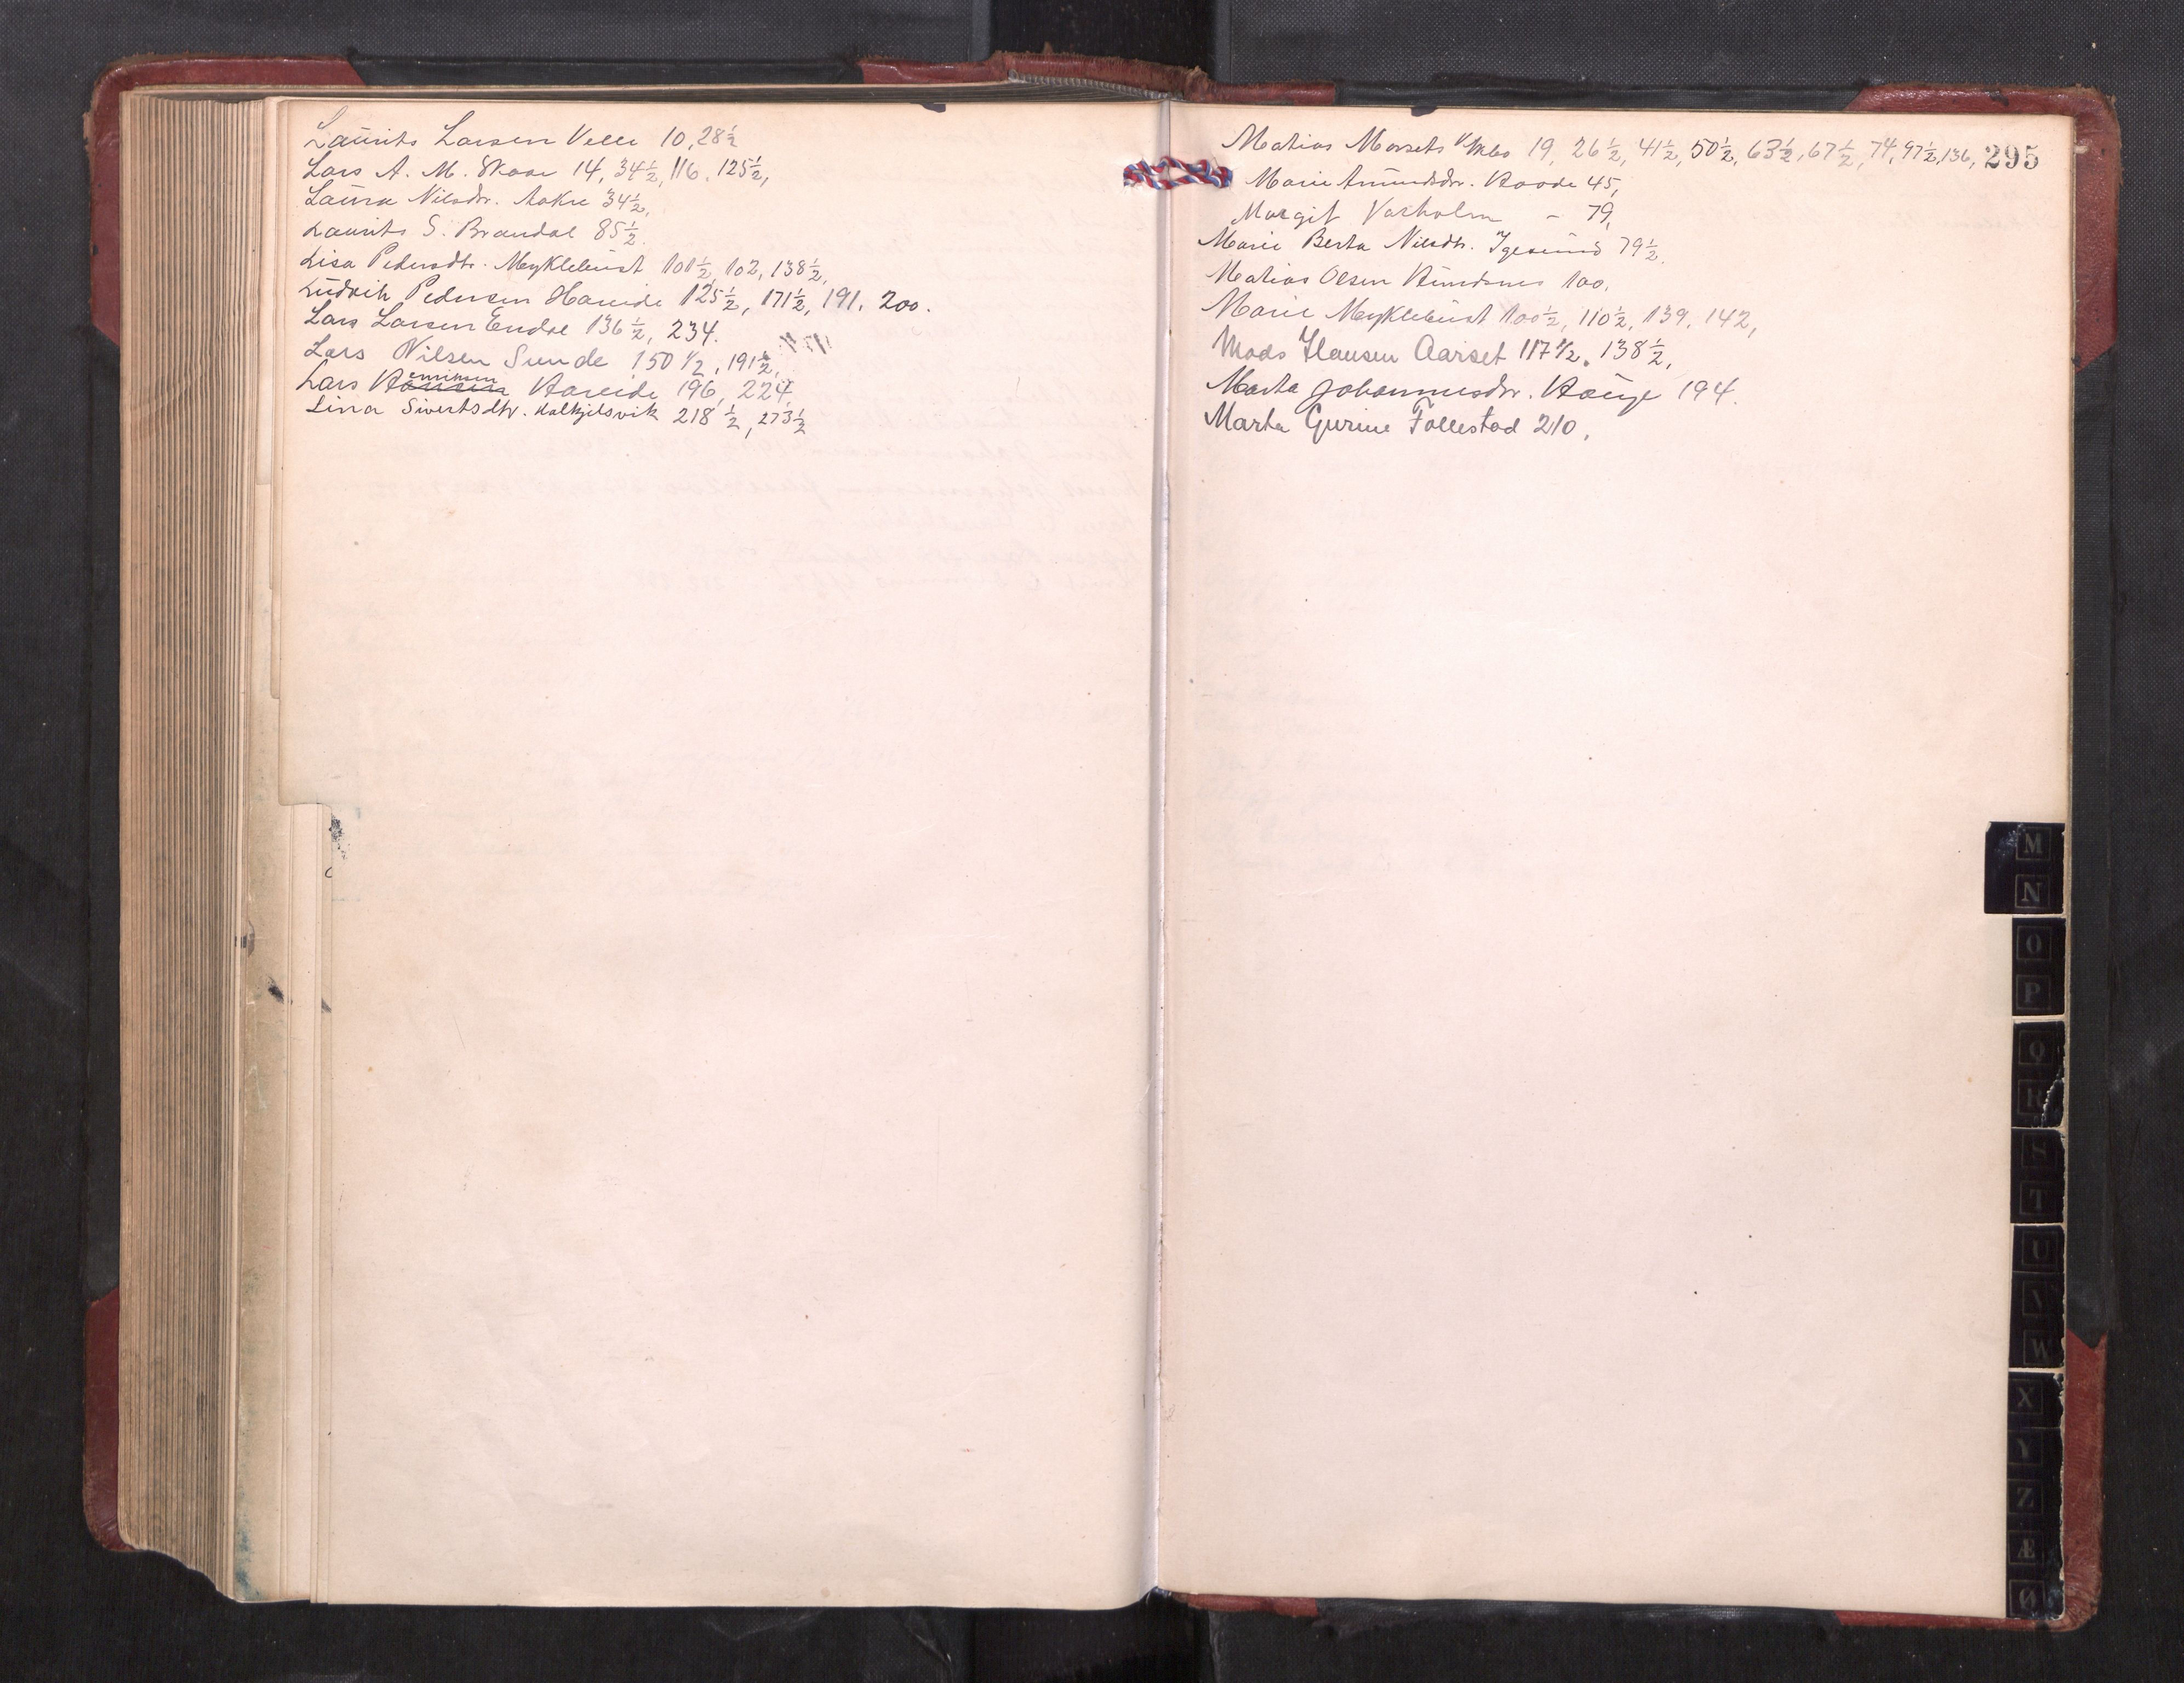 Laurits Larsen Velle 10, 28½
Lars A. M. Skaar 14, 34½, 116, 125½,
Laura Nilsdtr. Aakre 34½,
Laurits S. Brandal 85½.
Lisa Pedersdtr. Myklebust 101½, 102, 138½,
Ludvik Pedersen Hareide 125½, 171½, 191, 200.
Lars Larsen Endal 136½, 234.
Lars Nilsen Sunde 150 1/2, 191½,
Lars Henriksen Hareide 196, 224,
Lina Sivertsdtr. Kalkjelsvik 218½, 273½
295
Matias Morsets 19, 26½, 41½, 50½, 63½, 67½, 74, 97½, 136,
Marie Amundsdtr. Roode 45,
Margit Varholm - 79,
Marie Berta Nilsdtr. Igesund 79½.
Matias Olsen 100.
Marie Myklebust 100½, 110½, 139, 142,
Mads Hansen Aarset 117 1/2, 138½,
Marta Johannesdtr. Hauge 194.
Marta Gurine Follestad 210.
M
N
O
P
Q
R
S
T
U
V
W
X
Y
Z
Æ
Ø